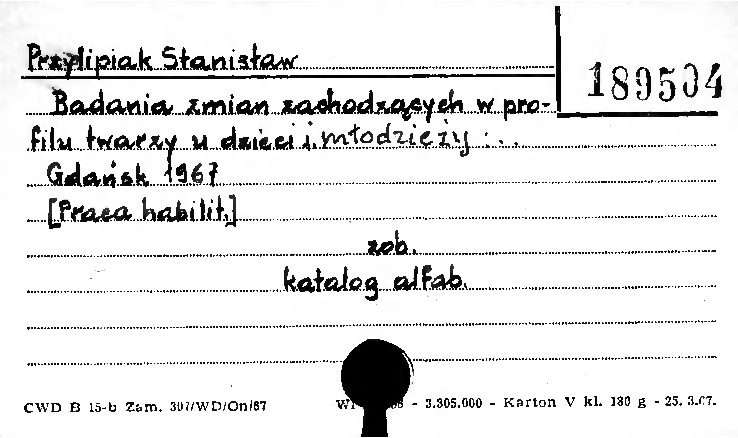 Przylipiak Stanisław
189504
Badania zmian zachodzących w pro-
filu twarzy u dzieci i młodzieży...
Gdańsk 1967
[Praca habilit.]
zob.
katalog alfab.
CWD B 15-b Zam. 307/WD/On/67
- 3.305.000 - Karton V kl. 180 g - 25. 3.67.